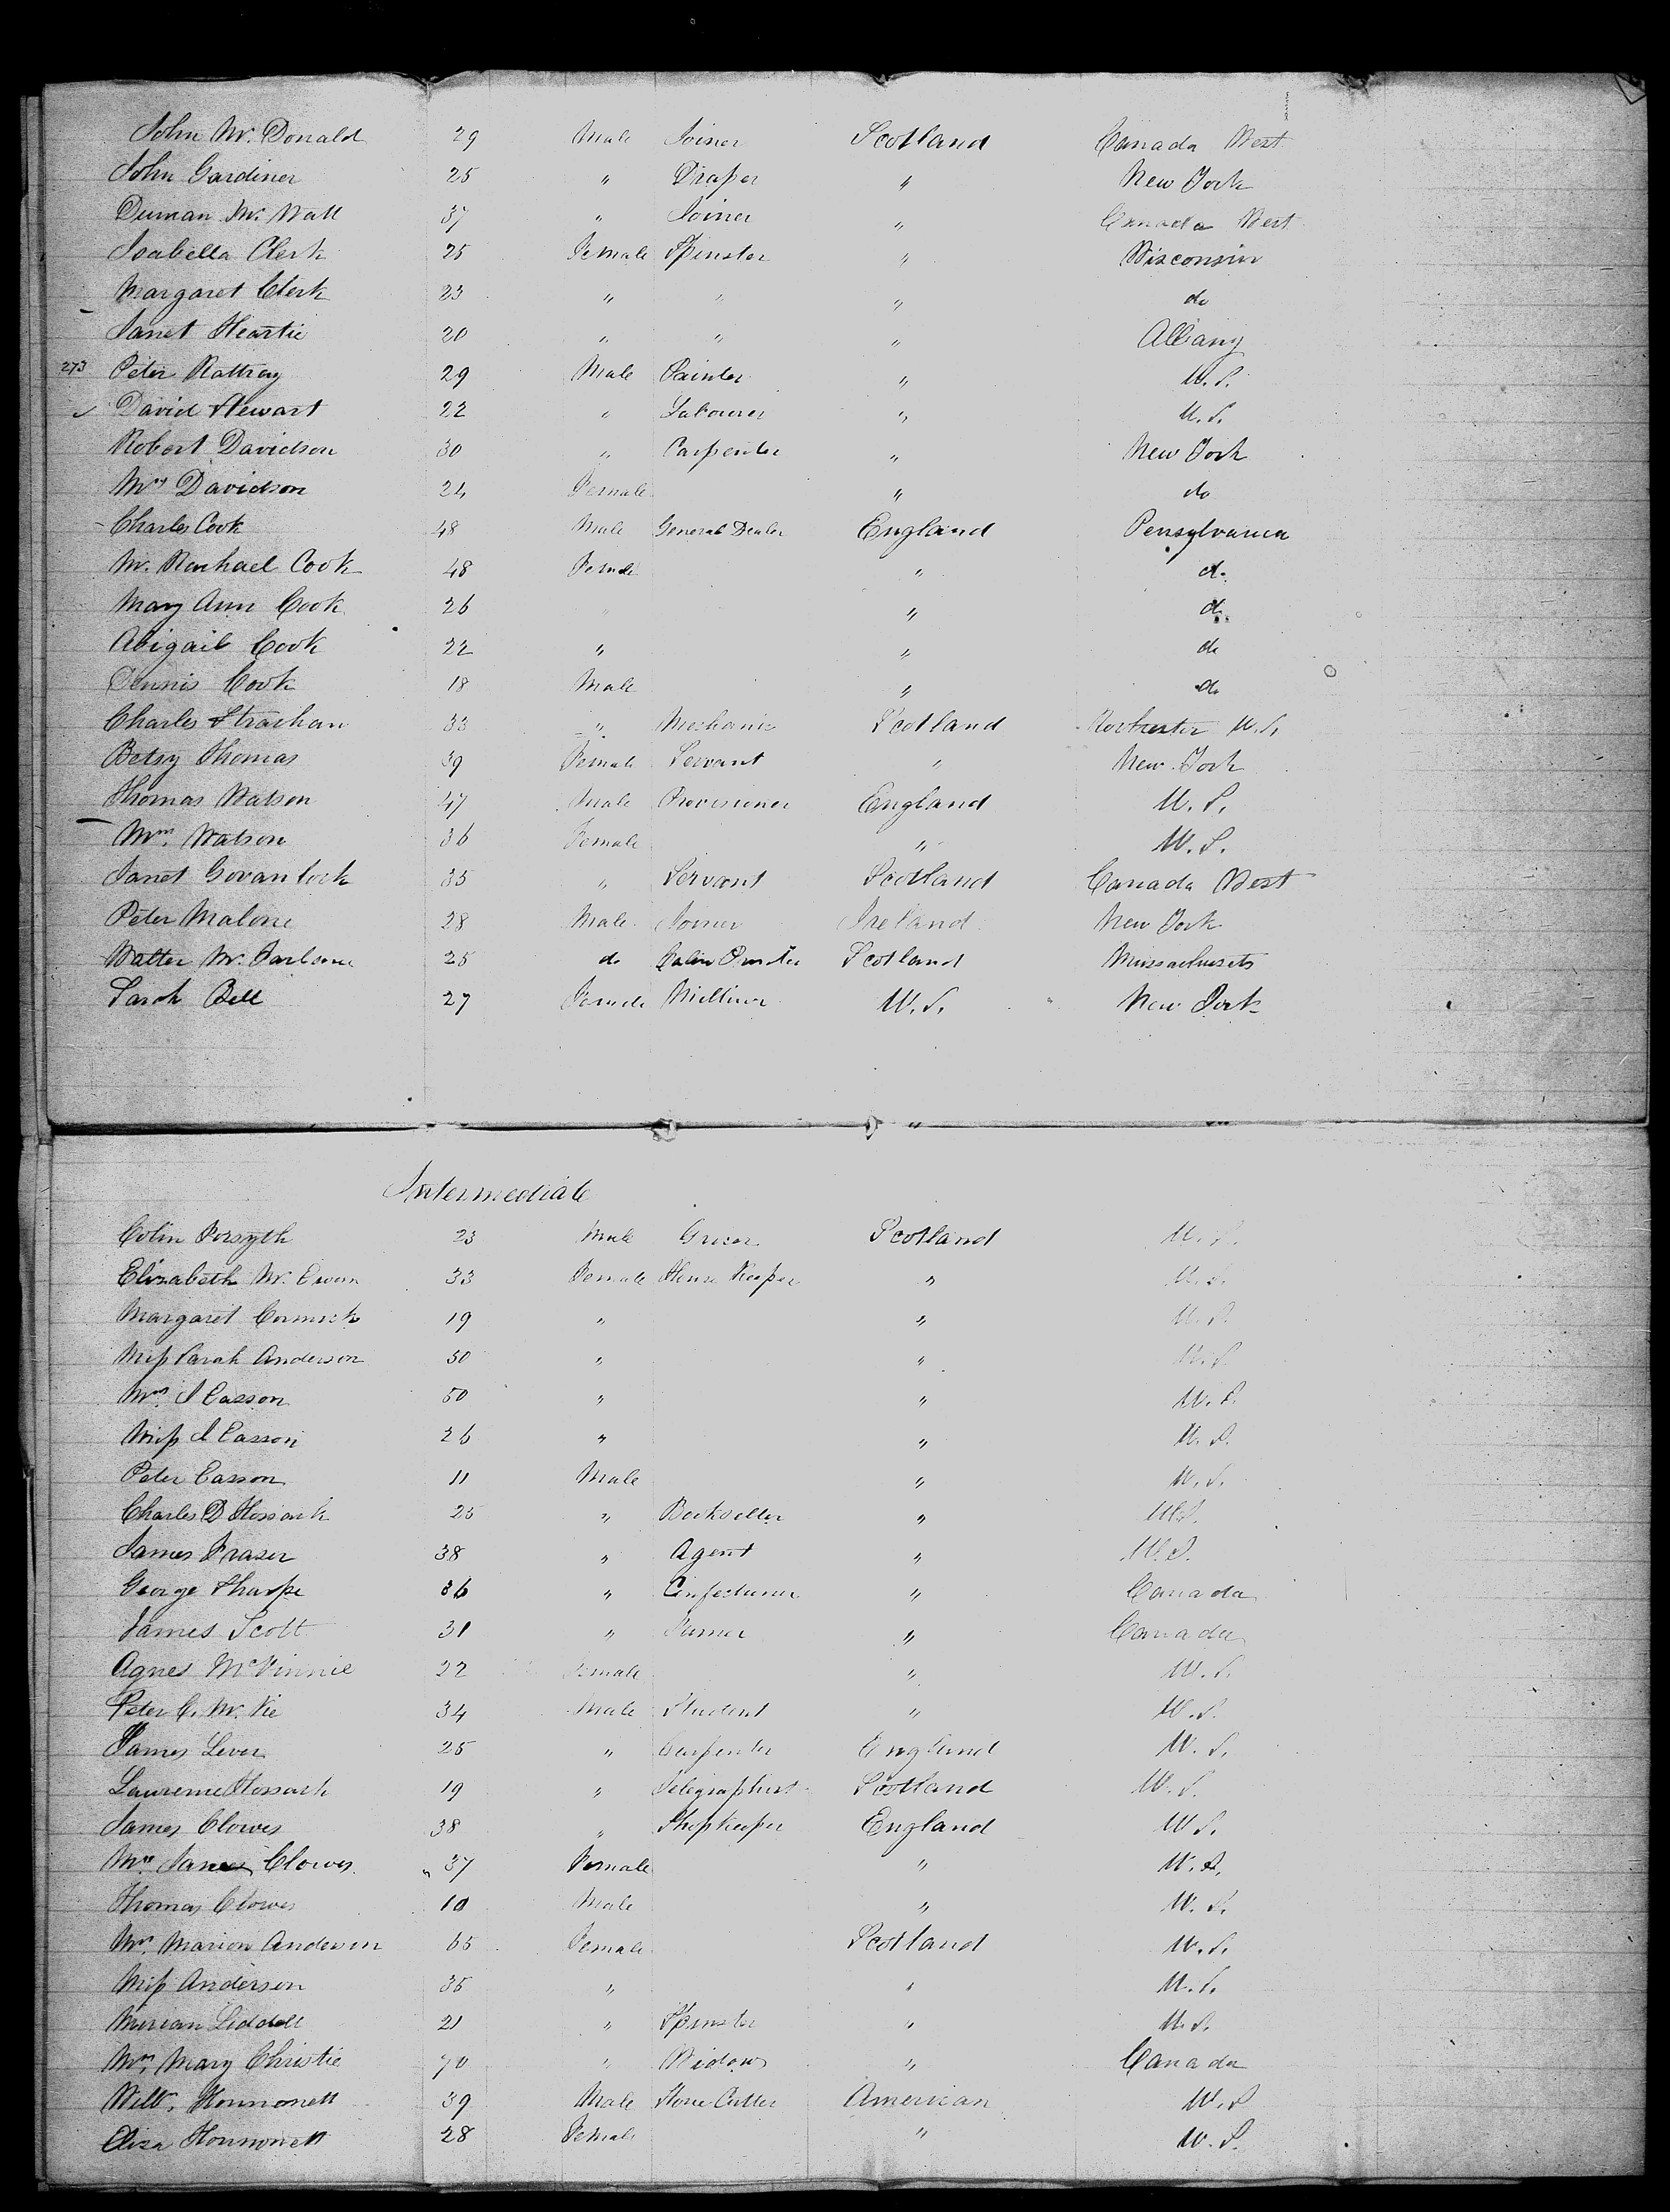 John Mc. Donald 29 Male Joiner Scotland Canada West
John Gardiner 25 " Draper " New York
Duncan Mc. Nall 37 " Joiner " Canada West
Isabella Clerk 25 Female Spinster " Wisconsin
Margaret Clerk 23 " " " do
Janet Heartie 20 " " " Albany
273 Peter Rattray 29 Male Painter " U.S.
David Stewart 22 " Labourer " U.S.
Robert Davidson 30 " Carpenter " New York
Mrs Davidson 24 Female " do
Charles Cook 48 Male General Dealer England Pensylvania
M. Rachael Cook 48 Female " do
Mary Ann Cook 26 " do
Abigail Cook 22 " " do
Dennis Cook 18 Male " do
Charles Strachan 33 " Mechanic Scotland Rochester U.S.
Betsy Thomas 39 Female Servant " New York
Thomas Watson 47 Male Provisioner England U.S.
Mrs. Watson 36 Female " U.S.
Janet Govanlock 35 " Servant Scotland Canada West
Peter Malone 28 Male Joiner Ireland New York
Walter Mc. 25 do Scotland Massachusets
Sarah Bell 27 Female Milliner U.S. New York
Intermediate
Colin Forsyth 23 Male Grocer Scotland U.S.
Elizabeth Mc. Ewen 33 Female House Keeper " U.S.
Margaret Cormick 19 " " U.S.
Miss Sarah Anderson 30 " " U.S.
Mrs. I Easson 50 " " U.S.
Miss I Easson 26 " " U.S.
Peter Easson 11 Male " U.S.
Charles D Hossack 25 " Bookseller " U.S.
James Fraser 38 " Agent " U.S.
George Sharpe 36 " Confectioner " Canada
James Scott 31 " Farmer " Canada
Agnes McVinnie 22 Female " U.S.
Peter C. Mc. Vie 34 Male Student " U.S.
James Lever 25 " Carpenter England U.S.
Laurence Hossack 19 " Telegraphist Scotland U.S.
James Clowes 38 " Shopkeeper England U.S.
Mrs. James Clowes 37 Female " U.S.
Thomas Clowes 10 Male " U.S.
Mrs. Marion Anderson 65 Female Scotland U.S.
Miss Anderson 35 " " U.S.
Mirian Liddell 21 " Spinster " U.S.
Mrs. Mary Christie 70 " Widow " Canada
Will. Hommonett 39 Male Stone Cutter American U.S
Eliza Hommonett 28 Female " U.S.